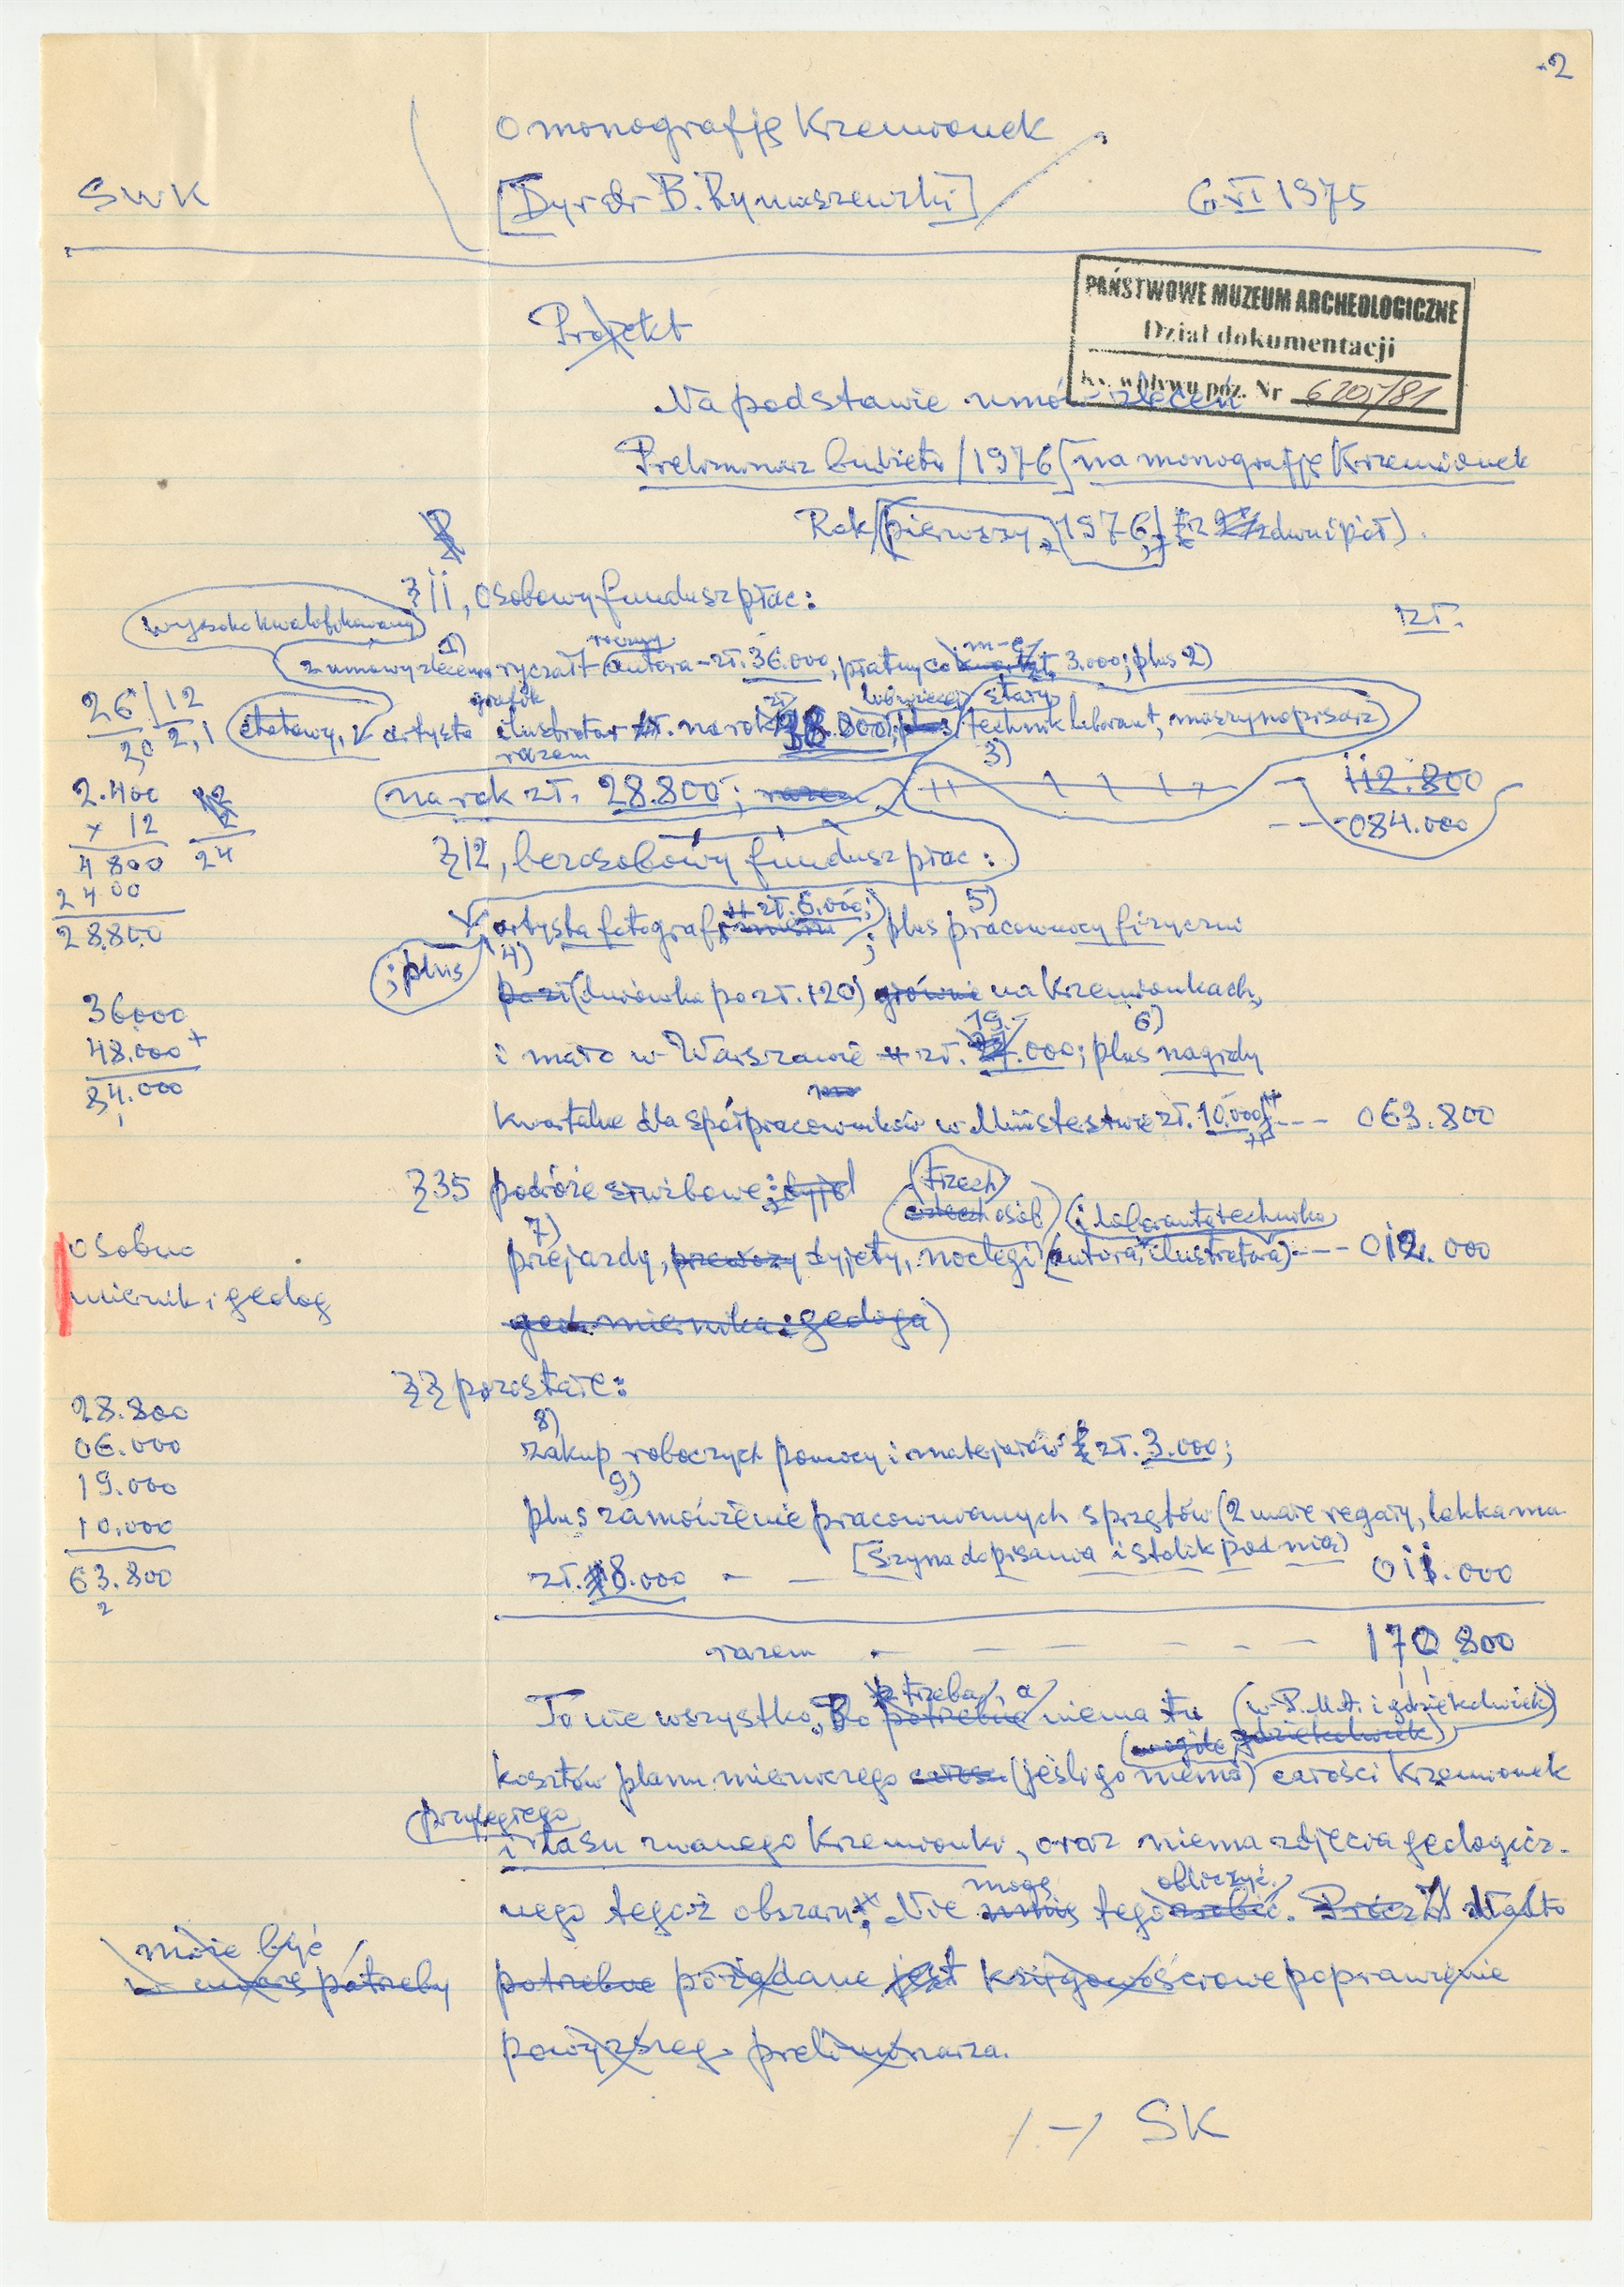 2
o monografję Krzemionek
SWK
[Dyr dr B. Rymaszewski]
6 VI 1975
PAŃSTWOWE MUZEUM ARCHEOLOGICZNE
Dział dokumentacji
Ks. wpływu poz. Nr 6205/81
Projekt
Na podstawie umów-zleceń
Preliminarz budżetu /1976/ na monografję Krzemionek
Rok pierwszy, 1976, (z dwu i pół).
§ 11, osobowy fundusz płac:
wysoko kwalifikowany
zł.
1) roczny m-c
z umowy zlecenia ryczałt autora - zł. 36.000, płatny co zł. 3.000; plus 2)
grafik stały
etatowy, artysta ilustrator zł. na rok 48.000; plus technik laborant, maszynopisarz
razem 3)
na rok zł. 28.800; razem 112.800
084.000
26 | 12
20 2,1
2.400 12
x 12 2
4 800 24
2 4 00
28.800
§ 12, bezosobowy fundusz płac:
zł. 6.000; 5)
artysta fotograf; plus pracownicy fizyczni
; plus 4)
(dniówka po zł. 120) głównie na Krzemionkach,
19. 6)
i mało w Warszawie zł. .000; plus nagrody
kwartalne dla spółpracowników w Ministerstwie zł. 10.000 --- 063.800
36000
48.000 +
84.000
§ 35 podróże służbowe:
trzech
osób i laboranta technika
7)
przejazdy, przewozy dyjety, noclegi (autora, ilustratora) --- 012.000
miernika i geologa)
osobno
miernik i geolog
§§ pozostałe:
8)
zakup roboczych pomocy i materjałów zł. 3.000;
9)
plus zamówienie pracownianych sprzętów (2 małe regały, lekka ma
[szyna do pisania i stolik pod nią)
zł. 8.000 - - 011.000
28.800
06.000
19.000
10.000
63.800
2
razem - - - - - - - 170.800
trzeba, a (w P.M.A. i gdziekolwiek)
To nie wszystko, Bo potrebne niema tu
gdziekolwiek)
kosztów planu mierniczego (jeśli go niema) całości Krzemionek
przyległego
i lasu zwanego Krzemionki, oraz niema zdjęcia geologicz-
mogę obliczyć.
nego tegoż obszaru; Nie umię tego zrobić. Prócz Nadto
może być
w miarę potrzeby potrzebne pożądane jest księgowościowe poprawienie
powyższego preliminarza.
/-/ SK